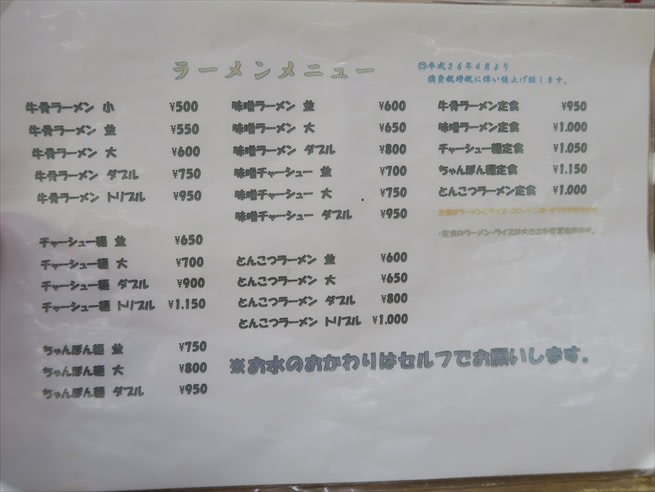 ラーメンメニュー
◎平成26年4月より
消費税増税に伴い値上げ致します。
牛骨ラーメン 小 ¥500
牛骨ラーメン 並 ¥550
牛骨ラーメン 大 ¥600
牛骨ラーメン ダブル ¥750
牛骨ラーメン トリプル ¥950
チャーシュー麺 並 ¥650
チャーシュー麺 大 ¥700
チャーシュー麺 ダブル ¥900
チャーシュー麺 トリプル ¥1.150
ちゃんぽん麺 並 ¥750
ちゃんぽん麺 大 ¥800
ちゃんぽん麺 ダブル ¥950
味噌ラーメン 並 ¥600
味噌ラーメン 大 ¥650
味噌ラーメン ダブル ¥800
味噌チャーシュー 並 ¥700
味噌チャーシュー 大 ¥750
味噌チャーシュー ダブル ¥950
とんこつラーメン 並 ¥600
とんこつラーメン 大 ¥650
とんこつラーメン ダブル ¥800
とんこつラーメン トリプル ¥1.000
牛骨ラーメン定食 ¥950
味噌ラーメン定食 ¥1.000
チャーシュー麺定食 ¥1.050
ちゃんぽん麺定食 ¥1.150
とんこつラーメン定食 ¥1.000
※お水のおかわりはセルフでお願いします。